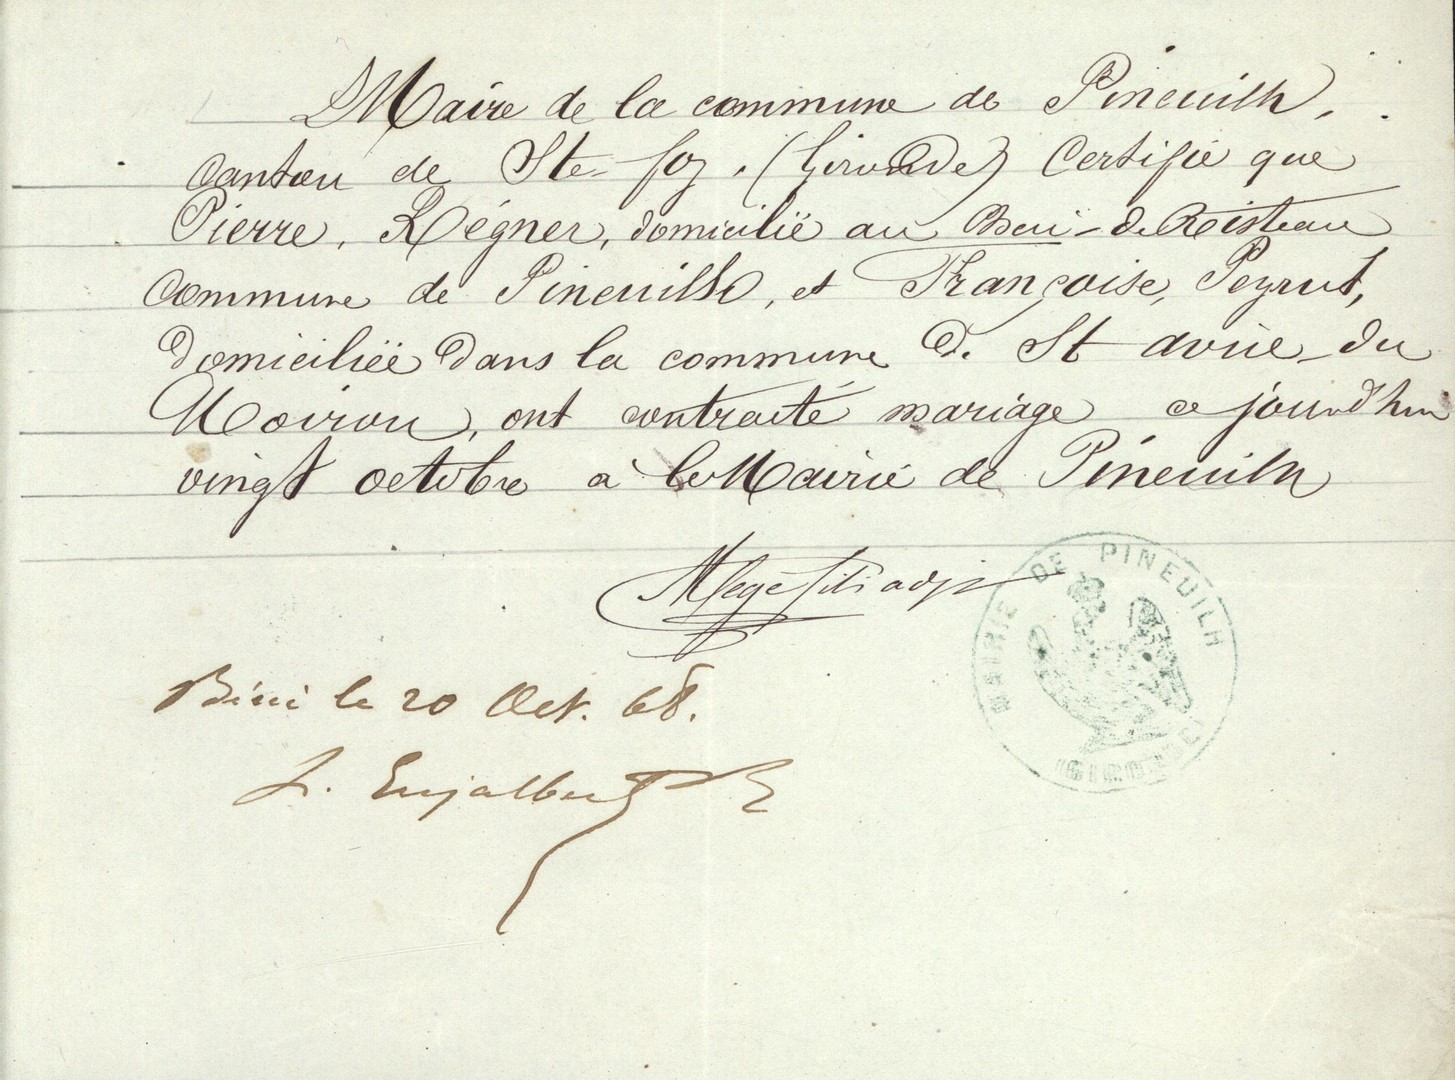 Maire de la commune de Pineuilh,
canton de Ste-foy. (Gironde) Certifie que
Pierre, Régner, domicilié au
commune de Pineuilh, et Françoise, Peyrut,
domiciliée dans la commune d. St avise-du
Moiron, ont contracté mariage ce jourd'hui
vingt octobre a la Mairie de Pineuilh
Mège fils adj
MAIRIE DE PINEUILH
(GIRONDE)
Béni le 20 Oct. 68.
L. Enjalbert